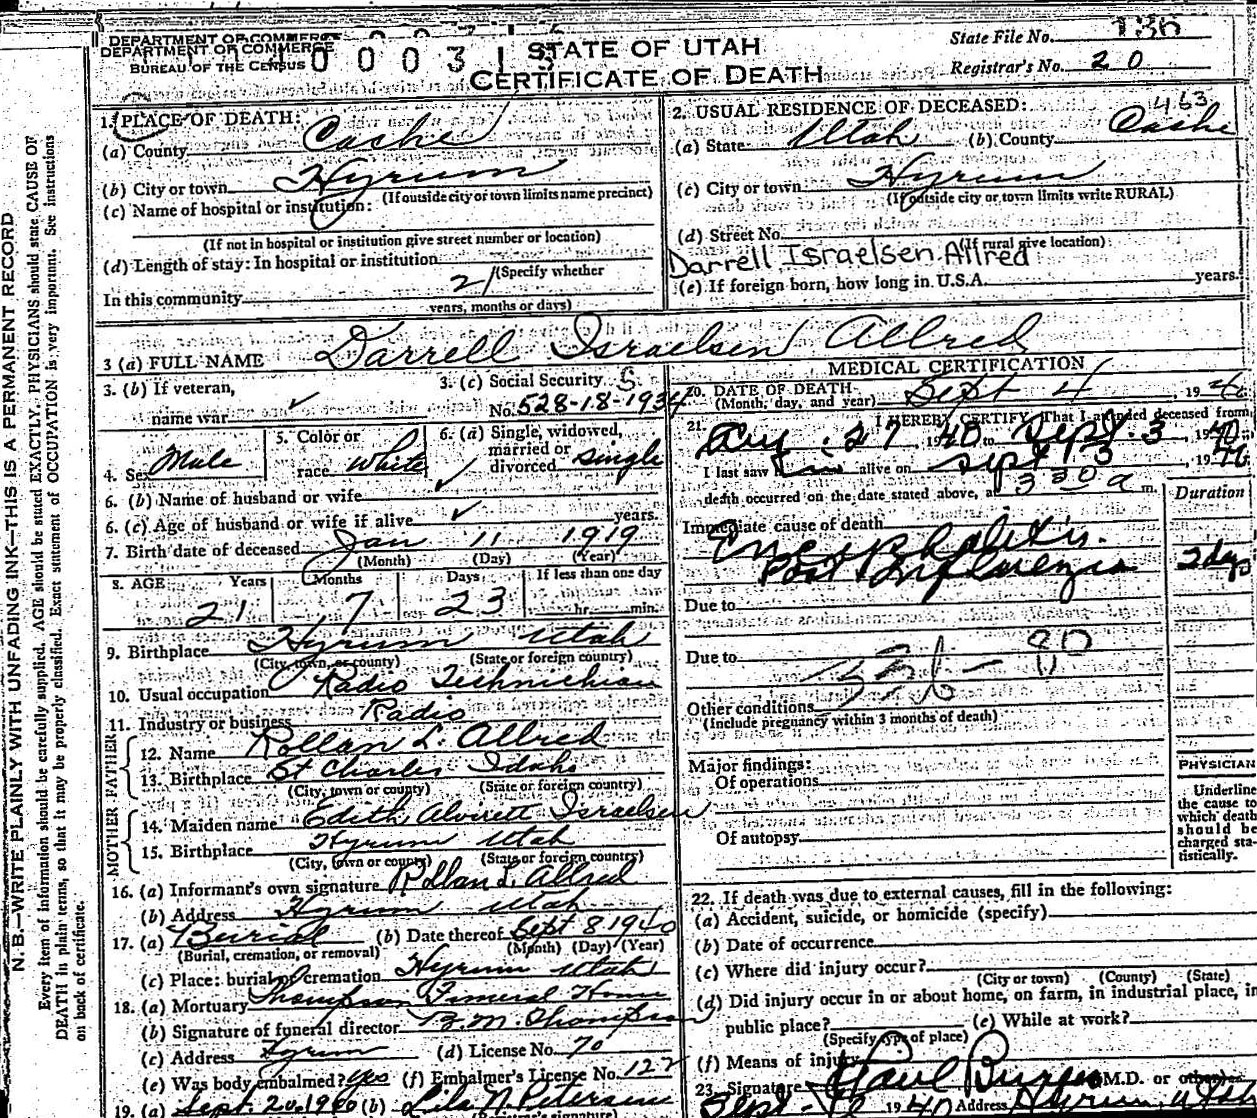 N.B.—WRITE PLAINLY WITH UNFADING INK—THIS IS A PERMANENT RECORD
Every item of information should be carefully supplied. AGE should be stated EXACTLY. PHYSICIANS should state CAUSE OF
DEATH in plain terms, so that it may be properly classified. Exact statement of OCCUPATION is very important. See instructions
on back of certificate.
DEPARTMENT OF COMMERCE
DEPARTMENT OF COMMERCE
BUREAU OF THE CENSUS
STATE OF UTAH
CERTIFICATE OF DEATH
State File No. 136
Registrar's No. 20
1. PLACE OF DEATH:
(a) County Cache
(b) City or town Hyrum
(If outside city or town limits name precinct)
(c) Name of hospital or institution:
(If not in hospital or institution give street number or location)
(d) Length of stay: In hospital or institution
(Specify whether
In this community 21
years, months or days)
2. USUAL RESIDENCE OF DECEASED: 463
(a) State Utah (b) County Cache
(c) City or town Hyrum
(If outside city or town limits write RURAL)
(d) Street No.
(If rural give location)
Darrell Israelsen Allred
(e) If foreign born, how long in U.S.A. years.
3 (a) FULL NAME Darrell Israelsen Allred
3. (b) If veteran,
name war
3. (c) Social Security S.
No. 528-18-1934
4. Sex Male
5. Color or
race white
6. (a) Single, widowed,
married or
divorced single
6. (b) Name of husband or wife
6. (c) Age of husband or wife if alive years.
7. Birth date of deceased Jan 11 1919
(Month) (Day) (Year)
8. AGE Years Months Days If less than one day
21 7 23 hr. min.
9. Birthplace Hyrum Utah
(City, town, or county) (State or foreign country)
10. Usual occupation Radio Technichian
11. Industry or business Radio
FATHER
12. Name Rollan L. Allred
13. Birthplace St Charles Idaho
(City, town or county) (State or foreign country)
MOTHER
14. Maiden name Edith Alvirett Israelsen
15. Birthplace Hyrum Utah
(City, town or county) (State or foreign country)
16. (a) Informant's own signature Rollan L. Allred
(b) Address Hyrum Utah
17. (a) Burial (b) Date thereof Sept 8 1940
(Burial, cremation, or removal) (Month) (Day) (Year)
(c) Place: burial or cremation Hyrum Utah
18. (a) Mortuary Thompson Funeral Home
(b) Signature of funeral director B.M. Thompson
(c) Address Hyrum (d) License No. 70
(e) Was body embalmed? yes (f) Embalmer's License No. 122
19. (a) Sept. 20, 1940 (b) Lila N. Petersen
MEDICAL CERTIFICATION
20. DATE OF DEATH Sept 4, 1940
(Month, day, and year)
21. I HEREBY CERTIFY, That I attended deceased from
Aug. 27, 1940 to Sept. 3, 1940
I last saw him alive on Sept 3, 1940
death occurred on the date stated above, at 3 30 a m.
Duration
Immediate cause of death
Encephalitis.
Post Influenzia 2 days
Due to
Due to
Other conditions
(Include pregnancy within 3 months of death)
Major findings:
Of operations
Of autopsy
PHYSICIAN
Underline
the cause to
which death
should be
charged sta-
tistically.
22. If death was due to external causes, fill in the following:
(a) Accident, suicide, or homicide (specify)
(b) Date of occurrence
(c) Where did injury occur?
(City or town) (County) (State)
(d) Did injury occur in or about home, on farm, in industrial place, in
public place? (e) While at work?
(Specify type of place)
(f) Means of injury
23. Signature Paul Burgess M.D. or other
Sept 1940 Address Hyrum, Utah